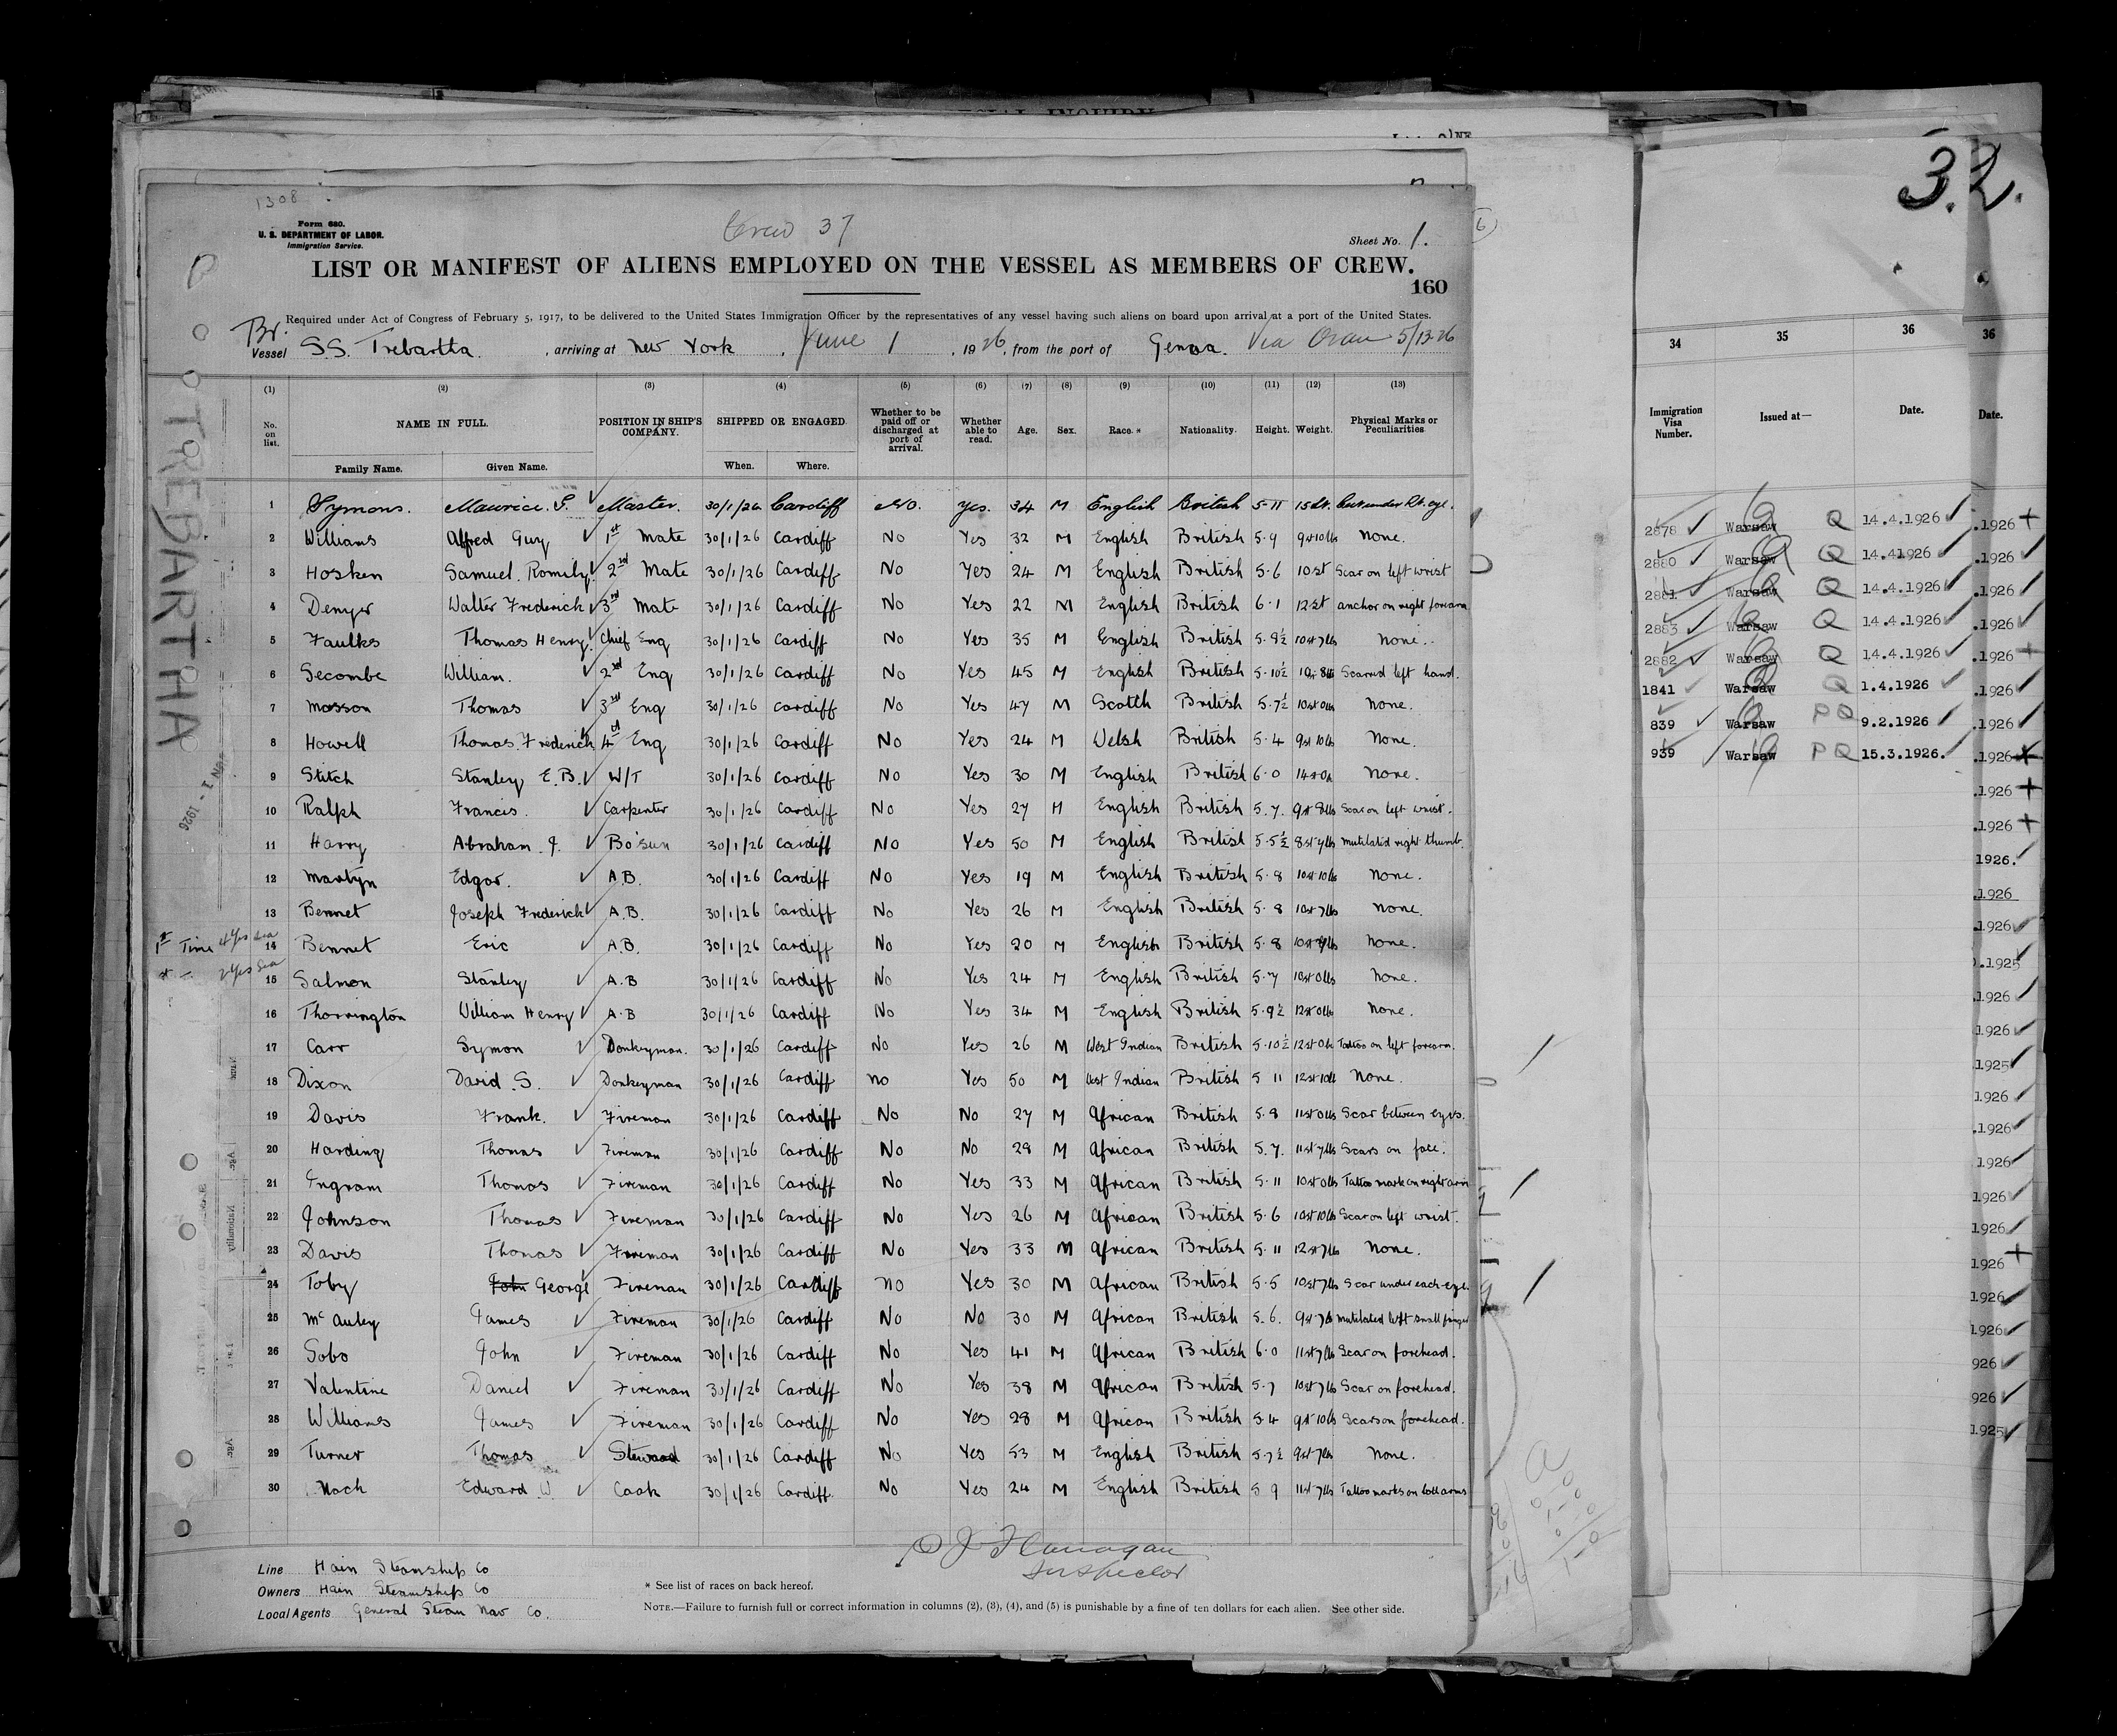 32.
1308
Form 680.
U. S. DEPARTMENT OF LABOR.
Immigration Service.
Crew 37
Sheet No. 1.
LIST OR MANIFEST OF ALIENS EMPLOYED ON THE VESSEL AS MEMBERS OF CREW.
160
Required under Act of Congress of February 5, 1917, to be delivered to the United States Immigration Officer by the representatives of any vessel having such aliens on board upon arrival at a port of the United States.
Br.
Vessel S.S. Trebartha, arriving at New York, June 1, 1926, from the port of Genoa. Via Oran 5/13-26
TREBARTHA
(1) (2) (3) (4) (5) (6) (7) (8) (9) (10) (11) (12) (13)
No. on list. NAME IN FULL. Family Name. Given Name. POSITION IN SHIP'S COMPANY. SHIPPED OR ENGAGED When. Where. Whether to be paid off or discharged at port of arrival. Whether able to read. Age. Sex. Race.* Nationality. Height. Weight. Physical Marks or Peculiarities
1 Symons. Maurice. S. Master. 30/1/26 Cardiff No. Yes. 34 M English British 5-11 15st. Cut under Rt. eye.
2 Williams Alfred Guy 1st Mate 30/1/26 Cardiff No Yes 32 M English British 5.9 9st10lbs None.
3 Hosken Samuel Romily 2nd Mate 30/1/26 Cardiff No Yes 24 M English British 5.6 10st Scar on left wrist
4 Denyer Walter Frederick 3rd Mate 30/1/26 Cardiff No Yes 22 M English British 6.1 12st anchor on right forearm
5 Faulks Thomas Henry Chief Eng 30/1/26 Cardiff No Yes 35 M English British 5.8½ 10st7lbs None.
6 Secombe William. 2nd Eng 30/1/26 Cardiff No Yes 45 M English British 5.10½ 10st 8lb Scarred left hand.
7 Masson Thomas 3rd Eng 30/1/26 Cardiff No Yes 47 M Scotch British 5.7½ 10st0lbs None.
8 Howell Thomas. Frederick 4th Eng 30/1/26 Cardiff No Yes 24 M Welsh British 5.4 9st10lbs None.
9 Stitch Stanley E.B. W/T 30/1/26 Cardiff No Yes 30 M English British 6.0 14st0lb None.
10 Ralph Francis. Carpenter 30/1/26 Cardiff No Yes 27 M English British 5.7. 9st 8lbs Scar on left wrist.
11 Harry Abraham. J. Bo'sun 30/1/26 Cardiff No Yes 50 M English British 5.5½ 8st7lbs Mutilated right thumb.
12 Martyn Edgar. A.B. 30/1/26 Cardiff No Yes 19 M English British 5.8 10st10lbs None.
13 Bennet Joseph Frederick A.B. 30/1/26 Cardiff No Yes 26 M English British 5.8 10st7lbs None.
1st Time 4 yrs sea
14 Bennet Eric A.B. 30/1/26 Cardiff No Yes 20 M English British 5.8 None.
2 yrs Sea
15 Salmon Stanley A.B 30/1/26 Cardiff No Yes 24 M English British 5.7 10st0lbs None.
16 Thorrington William Henry A.B 30/1/26 Cardiff No Yes 34 M English British 5.9½ 12st0lbs None.
17 Carr Symon Donkeyman. 30/1/26 Cardiff No Yes 26 M West Indian British 5.10½ 12st0lbs Tattoo on left forearm.
18 Dixon David. S. Donkeyman 30/1/26 Cardiff No Yes 50 M West Indian British 5 11 12st10lb None.
19 Davis Frank. Fireman 30/1/26 Cardiff No No 27 M African British 5.8 11st0lbs Scar between eyes.
20 Harding Thomas Fireman 30/1/26 Cardiff No No 29 M African British 5.7. 11st7lbs Scars on face.
21 Ingram Thomas Fireman 30/1/26 Cardiff No Yes 33 M African British 5.11 10st0lbs Tattoo mark on right arm
22 Johnson Thomas Fireman 30/1/26 Cardiff No Yes 26 M African British 5.6 10st10lbs Scar on left wrist.
23 Davis Thomas Fireman 30/1/26 Cardiff No Yes 33 M African British 5.11 12st7lbs None.
24 Toby John George Fireman 30/1/26 Cardiff No Yes 30 M African British 5.5 10st7lbs Scar under each eye.
25 McAuley James Fireman 30/1/26 Cardiff No No 30 M African British 5.6. 9st7lb Mutilated left small finger
26 Sobo John Fireman 30/1/26 Cardiff No Yes 41 M African British 6.0 11st7lbs Scar on forehead.
27 Valentine Daniel Fireman 30/1/26 Cardiff No Yes 38 M African British 5.7 10st7lbs Scar on forehead.
28 Williams James Fireman 30/1/26 Cardiff No Yes 28 M African British 5.4 9st10lbs Scars on forehead.
29 Turner Thomas Steward 30/1/26 Cardiff No Yes 53 M English British 5.7½ 9st7lbs None.
30 Nach Edward W. Cook 30/1/26 Cardiff. No Yes 24 M English British 5 9 11st7lbs Tattoo marks on both arms
D J Flanagan
Inspector
Line Hain Steamship Co
Owners Hain Steamship Co
Local Agents General Steam Nav Co.
* See list of races on back hereof.
NOTE.—Failure to furnish full or correct information in columns (2), (3), (4), and (5) is punishable by a fine of ten dollars for each alien. See other side.
34 35 36 36
Immigration Visa Number. Issued at— Date. Date.
2878 Warsaw Q 14.4.1926 .1926
2880 Warsaw Q 14.41926 .1926
2881 Warsaw Q 14.4.1926 .1926
2883 Warsaw Q 14.4.1926 .1926
2882 Warsaw Q 14.4.1926 .1926
1841 Warsaw Q 1.4.1926 .1926
839 Warsaw PQ 9.2.1926 .1926
939 Warsaw PQ 15.3.1926. .1926
.1926
.1926
1926.
.1926
.1926
.1925
.1926
.1926
.1925
.1926
.1926
.1926
.1926
.1926
.1926
.1926
.1926
926
926
.1925